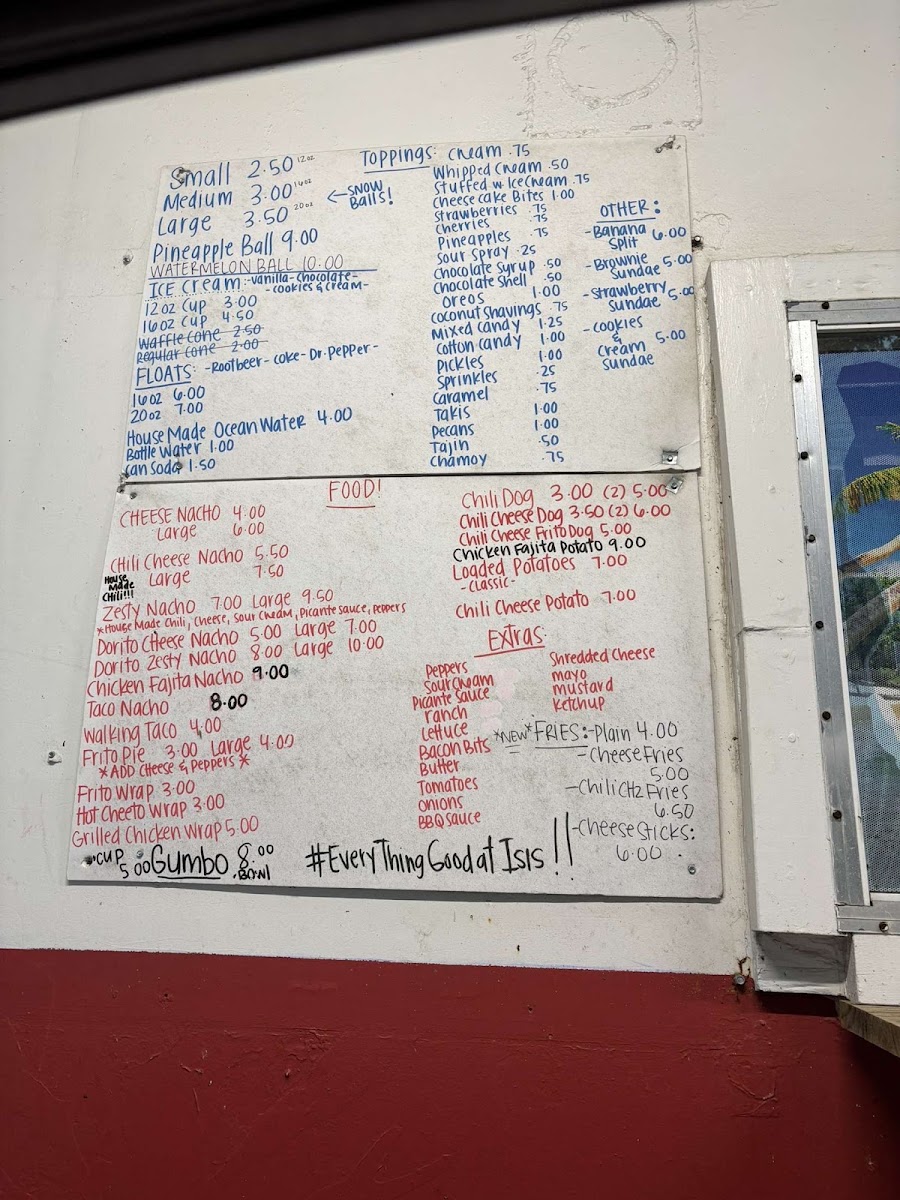 Small 2.50 12oz
Medium 3.00 16oz
Large 3.50 20oz
← SNOW Balls!
Pineapple Ball 9.00
WATERMELON BALL 10.00
ICE Cream: -Vanilla-Chocolate-
-Cookies & Cream-
12oz Cup 3.00
16oz Cup 4.50
Waffle Cone 2.50
Regular Cone 2.00
FLOATS: -Rootbeer-Coke-Dr.Pepper-
16oz 6.00
20oz 7.00
House Made Ocean Water 4.00
Bottle Water 1.00
Can Soda 1.50
TOPPINGS: Cream .75
Whipped Cream .50
Stuffed w. Ice Cream .75
Cheesecake Bites 1.00
Strawberries .75
Cherries .75
Pineapples .75
Sour Spray .25
Chocolate Syrup .50
Chocolate Shell .50
Oreos 1.00
Coconut Shavings .75
Mixed Candy 1.25
Cotton Candy 1.00
Pickles 1.00
Sprinkles .25
Caramel .75
Takis 1.00
Pecans 1.00
Tajin .50
Chamoy .75
OTHER:
-Banana Split 6.00
-Brownie Sundae 5.00
-Strawberry Sundae 5.00
-Cookies & Cream Sundae 5.00
FOOD!
CHEESE Nacho 4.00
Large 6.00
Chili Cheese Nacho 5.50
Large 7.50
House Made Chili!!!
Zesty Nacho 7.00 Large 9.50
*House Made Chili, Cheese, Sour Cream, Picante Sauce, Peppers
Dorito Cheese Nacho 5.00 Large 7.00
Dorito Zesty Nacho 8.00 Large 10.00
Chicken Fajita Nacho 9.00
Taco Nacho 8.00
Walking Taco 4.00
Frito Pie 3.00 Large 4.00
*ADD Cheese & Peppers*
Frito Wrap 3.00
Hot Cheeto Wrap 3.00
Grilled Chicken Wrap 5.00
•CUP 5.00 Gumbo 8.00 •Bowl
Chili Dog 3.00 (2) 5.00
Chili Cheese Dog 3.50 (2) 6.00
Chili Cheese Frito Dog 5.00
Chicken Fajita Potato 9.00
Loaded Potatoes 7.00
-Classic-
Chili Cheese Potato 7.00
Extras:
Peppers
Sour Cream
Picante Sauce
Ranch
Lettuce
Bacon Bits
Butter
Tomatoes
Onions
BBQ Sauce
Shredded Cheese
Mayo
Mustard
Ketchup
*NEW* FRIES: -Plain 4.00
-Cheese Fries
5.00
-Chili CHZ Fries
6.50
-Cheese Sticks:
6.00
#EveryThing Good at Isis!!